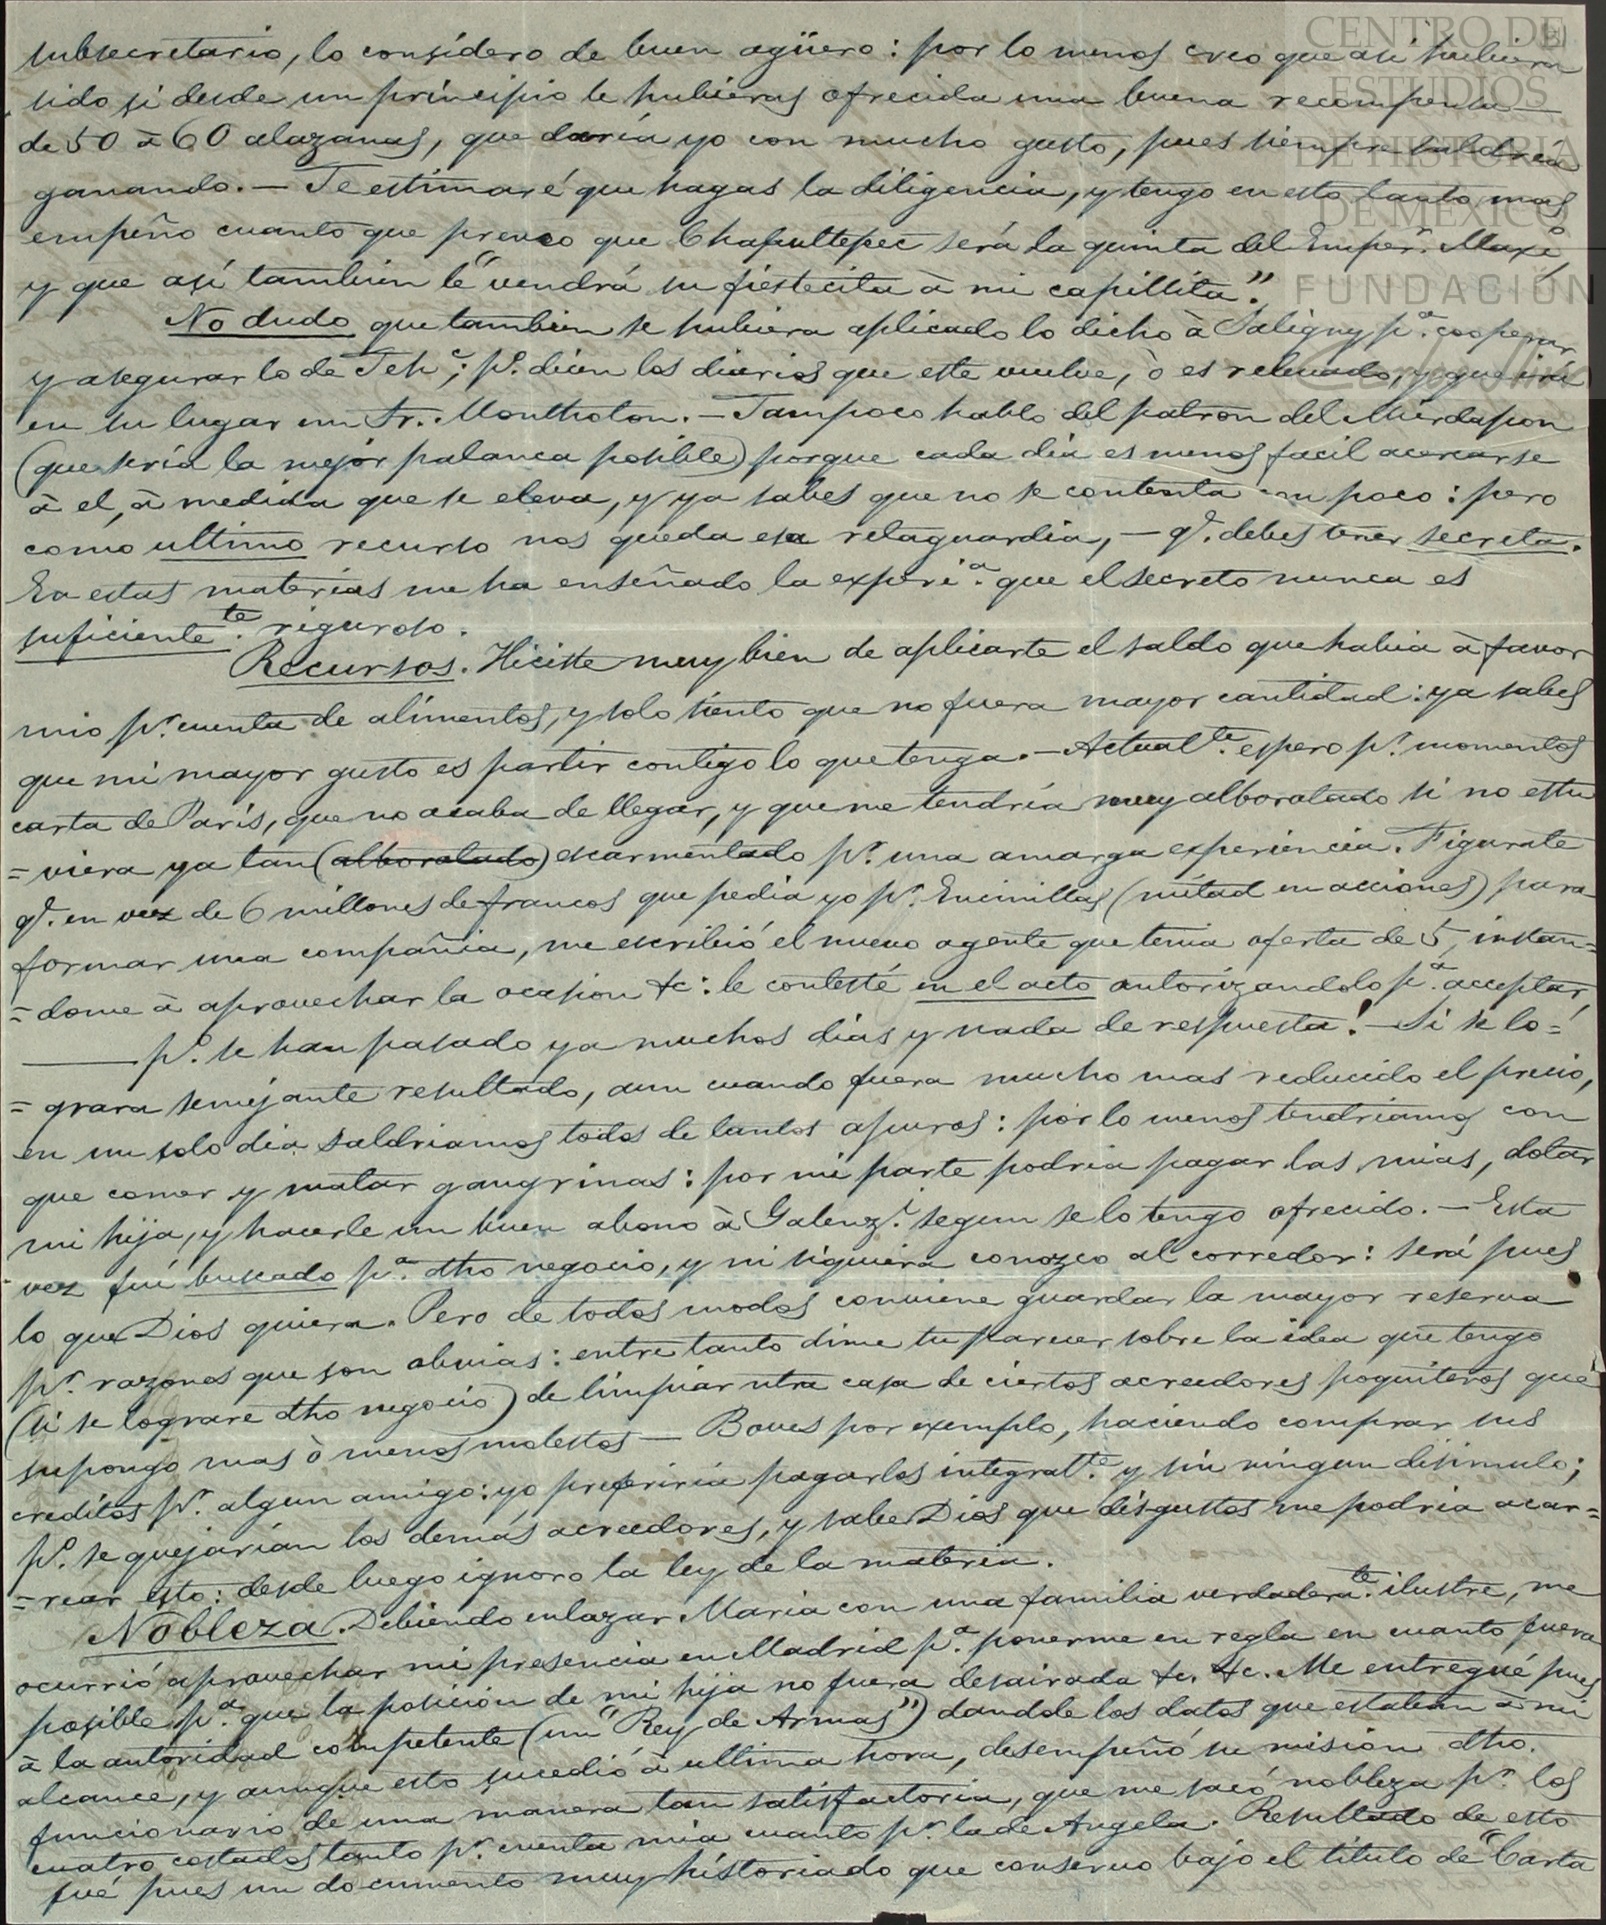 CENTRO DE
ESTUDIOS
DE HISTORIA
DE MÉXICO
FUNDACIÓN
subsecretario, lo considero de buen agüero: por lo menos creo que asi hubiera
sido si desde un principio le hubieras ofrecida una buena recompensa
de 50 à 60 alazanas, que daría yo con mucho gusto, pues siempre saldria
ganando. — Te estimaré que hagas la diligencia, y tengo en esto tanto mas
empeño cuanto que preveo que Chapultepec será la quinta del Emper.r Maxi.o,
y que así tambien le "vendrá su fiestecita à mi capillita".
No dudo que tambien se hubiera aplicado lo dicho à Saligny p.a cooperar
y asegurar lo de Teh.c; p.o dicen los diarios que este vuelve, ò es relevado, y que irá
en su lugar un Sr. Montholon. — Tampoco hablo del patron del
(que sería la mejor palanca posible) porque cada dia es menos facil acercarse
à el, à medida que se eleva, y ya sabes que no se contenta con poco: pero
como ultimo recurso nos queda esa retaguardia, — q.e debes tener secreta.
En estas materias me ha enseñado la experi.a que el secreto nunca es
suficiente.te riguroso.
Recursos. Hiciste muy bien de aplicarte el saldo que habia à favor
mio p.r cuenta de alimentos, y solo siento que no fuera mayor cantidad: ya sabes
que mi mayor gusto es partir contigo lo que tenga. — Actual.te espero p.r momentos
carta de París, que no acaba de llegar, y que me tendría muy alborotado si no estu
=viera ya tan (alborotado) escarmentado p.r una amarga experiencia. Figurate
q.e en vez de 6 millones de francos que pedia yo p.r Encinillas (mitad en acciones) para
formar una compañia, me escribió el nuevo agente que tenia oferta de 5, instan=
=dome à aprovechar la ocasion &c: le contesté en el acto autorizandolo p.a acceptar,
— p.o se han pasado ya muchos dias y nada de respuesta! — Si se lo=
=grara semejante resultado, aun cuando fuera mucho mas reducido el precio,
en un solo dia saldriamos todos de tantos apuros: por lo menos tendriamos con
que comer y matar gangrinas: por mi parte podria pagar las mias, dotar
mi hija, y hacerle un buen abono à Galenz.i segun se lo tengo ofrecido. — Esta
vez fué buscado p.a dho negocio, y ni siquiera conozco al corredor: será pues
lo que Dios quiera. Pero de todos modos conviene guardar la mayor reserva
p.r razones que son obvias: entre tanto dime tu parecer sobre la idea que tengo
(si se lograre dho negocio) de limpiar ntra casa de ciertos acreedores poquiteros que
supongo mas ò menos molestos — Boves por exemplo, haciendo comprar sus
creditos p.r algun amigo: yo preferiria pagarlos integral.te y sin ningun disimulo;
p.o se quejarían los demás acreedores, y sabe Dios que disgustos me podria acar=
=rear esto: desde luego ignoro la ley de la materia.
Nobleza. Debiendo enlazar Maria con una familia verdadera.te ilustre, me
ocurrió aprovechar mi presencia en Madrid p.a ponerme en regla en cuanto fuera
posible p.a que la posición de mi hija no fuera desairada &c. &c. Me entregué pues
à la autoridad competente (un "Rey de Armas") dandole los datos que estaban à mi
alcance, y aunque esto sucedió à ultima hora, desempeñó su mision dho.
funcionario de una manera tan satisfactoria, que me sacó nobleza p.r los
cuatro costados tanto p.r cuenta mia cuanto p.r la de Angela. Resultado de esto
fué pues un documento muy historiado que conservo bajo el titulo de "Carta